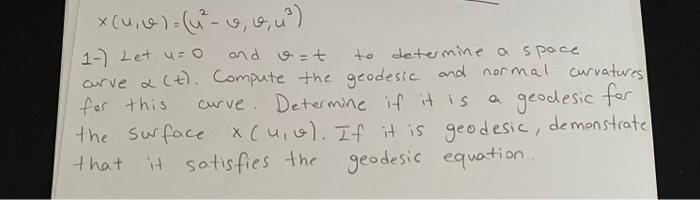 x(u,v)=(u²-v, v, u³)
1-) Let u=0 and v=t to determine a space
curve α(t). Compute the geodesic and normal curvatures
for this curve. Determine if it is a geodesic for
the surface x(u,v). If it is geodesic, demonstrate
that it satisfies the geodesic equation.